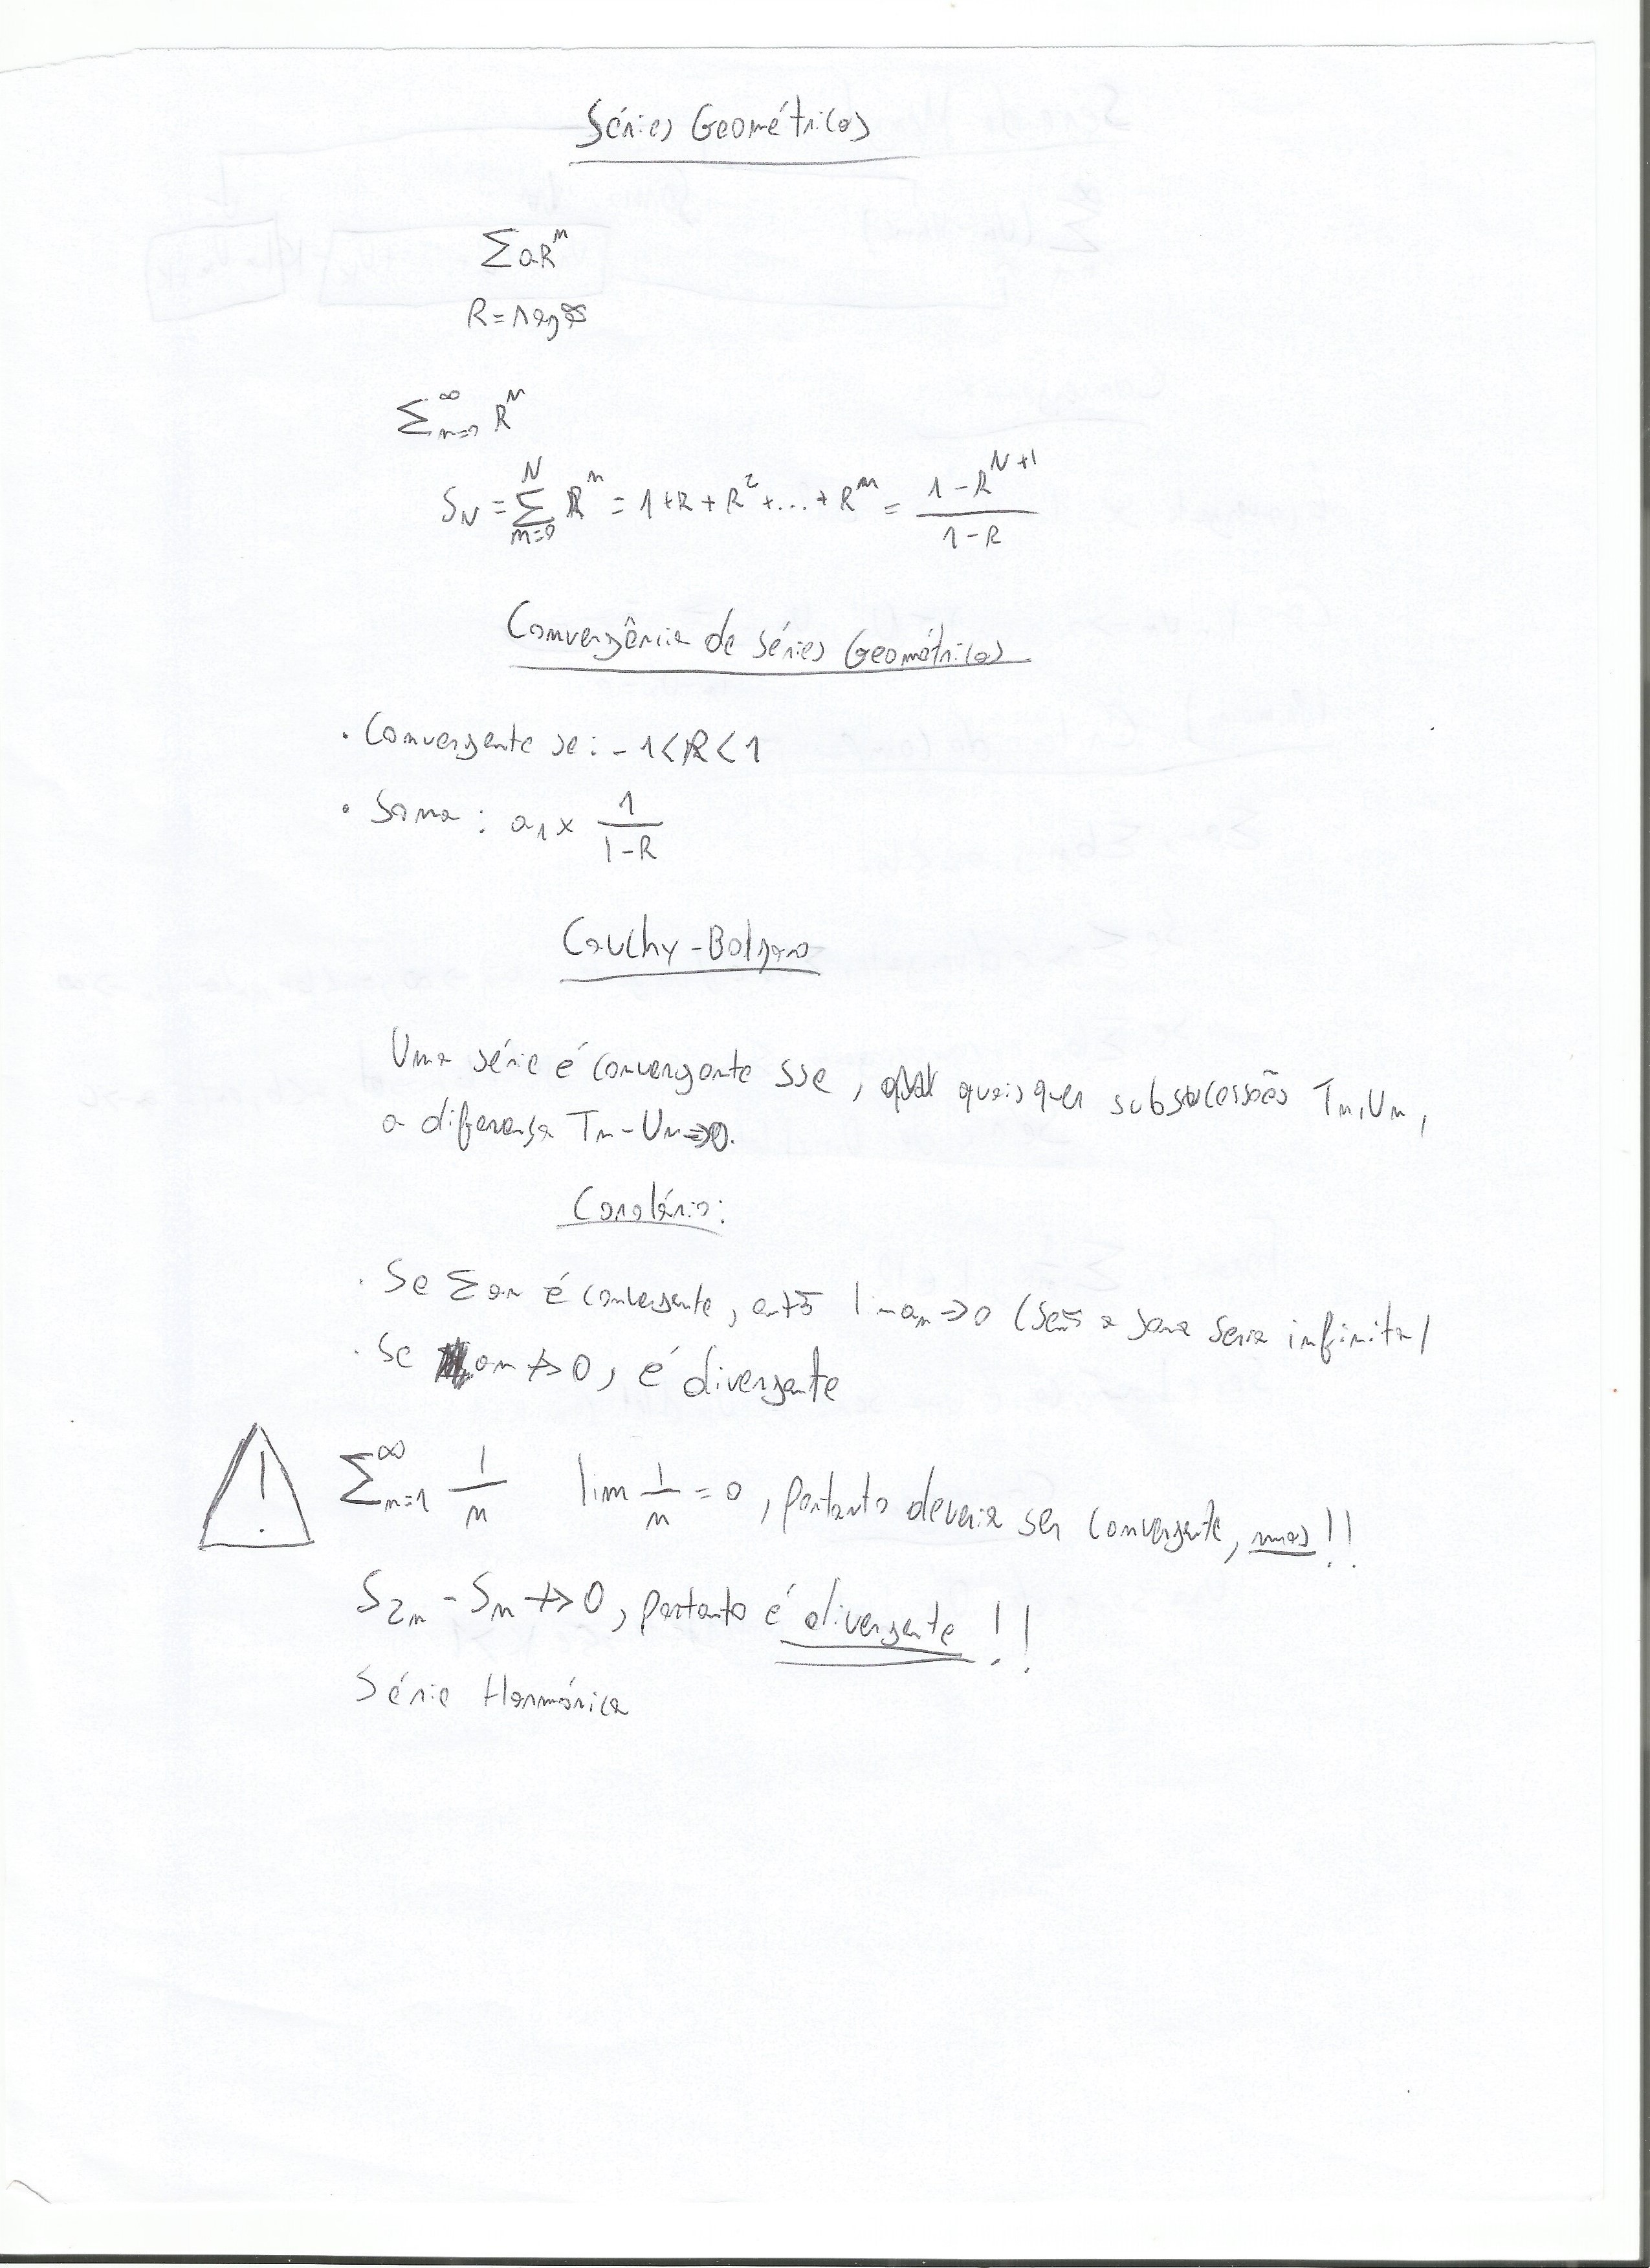 Séries Geométricas
∑aRⁿ
R=razão
∑ₙ₌₀^∞ Rⁿ
S_N = ∑ₙ₌₀^N Rⁿ = 1+R+R²+...+Rⁿ = (1-R^(N+1))/(1-R)
Convergência de séries Geométricas
• Convergente se: -1<R<1
• Soma: a₁ × 1/(1-R)
Cauchy-Bolzano
Uma série é convergente sse, quaisquer subsucessões Tₙ,Uₙ,
a diferença Tₙ-Uₙ→0.
Corolário:
• Se ∑aₙ é convergente, então lim aₙ→0 (senão a soma seria infinita)
• Se aₙ↛0, é divergente
! ∑ₙ₌₁^∞ 1/n lim 1/n = 0, portanto deveria ser convergente, mas!!
S₂ₙ - Sₙ ↛ 0, portanto é divergente!!
Série Harmónica